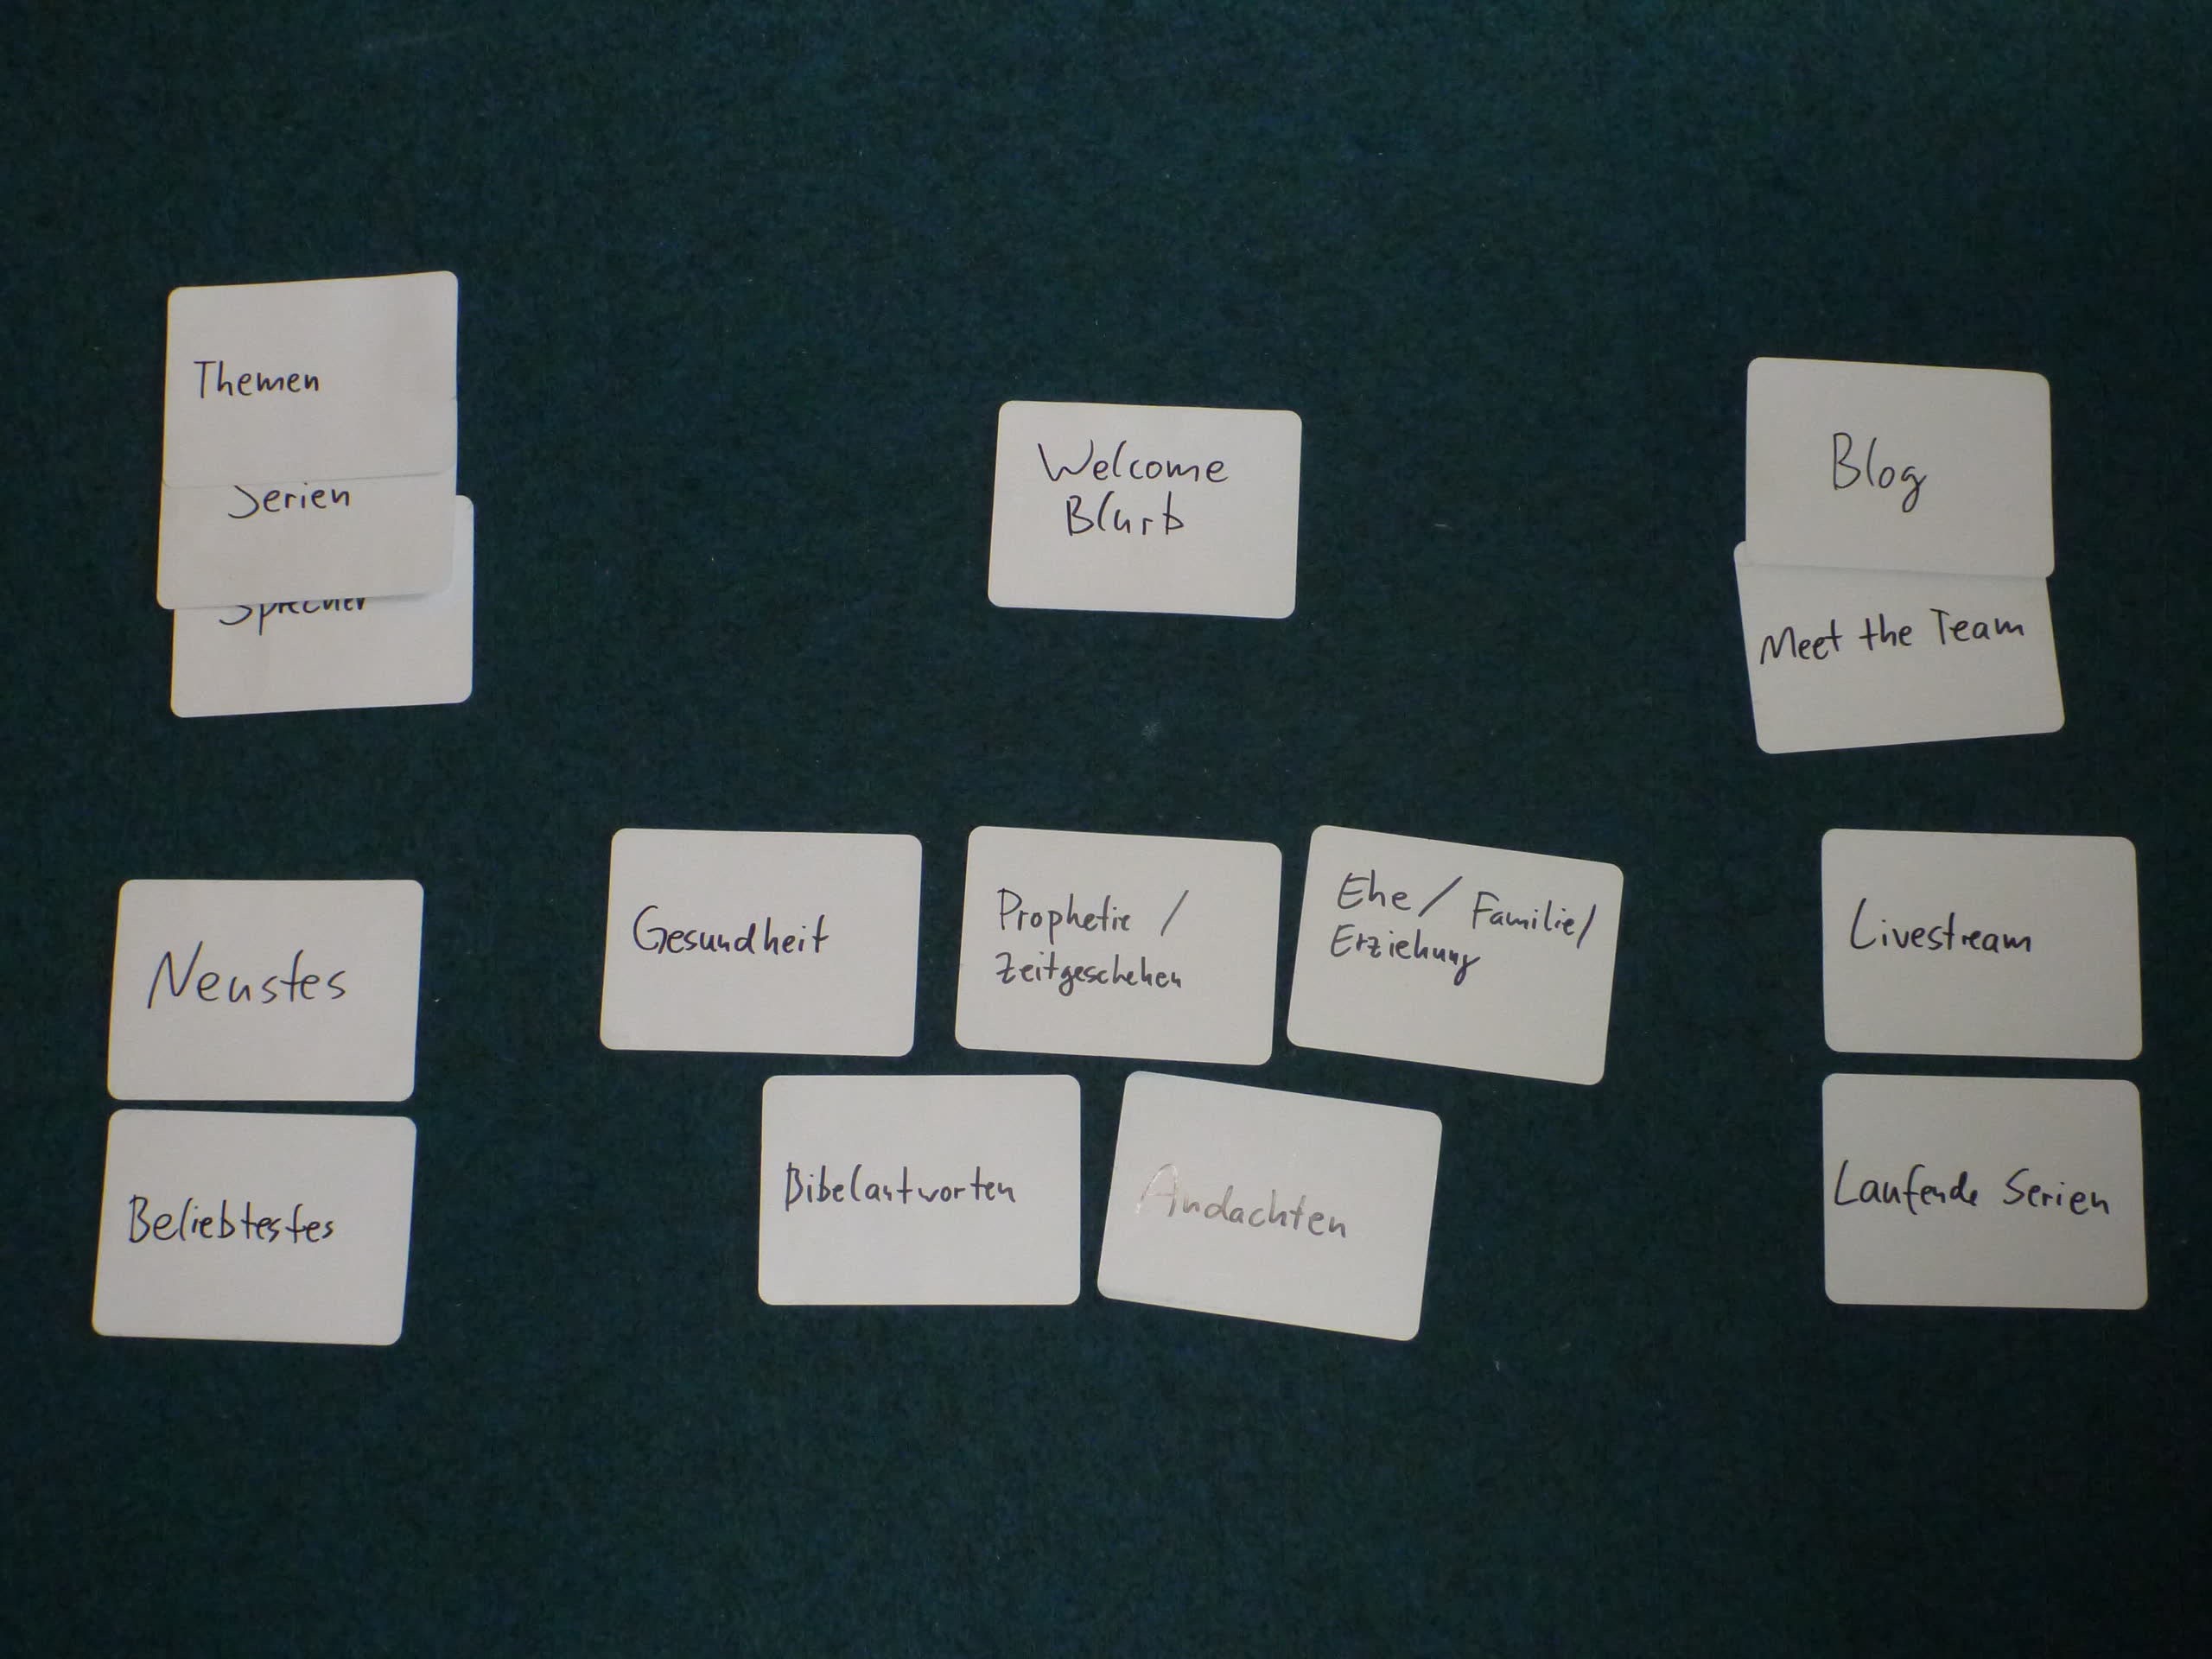 Themen
Serien
Sprecher
Welcome
Blurb
Blog
Meet the Team
Neustes
Beliebtestes
Gesundheit
Prophetie /
Zeitgeschehen
Ehe / Familie /
Erziehung
Bibelantworten
Andachten
Livestream
Laufende Serien